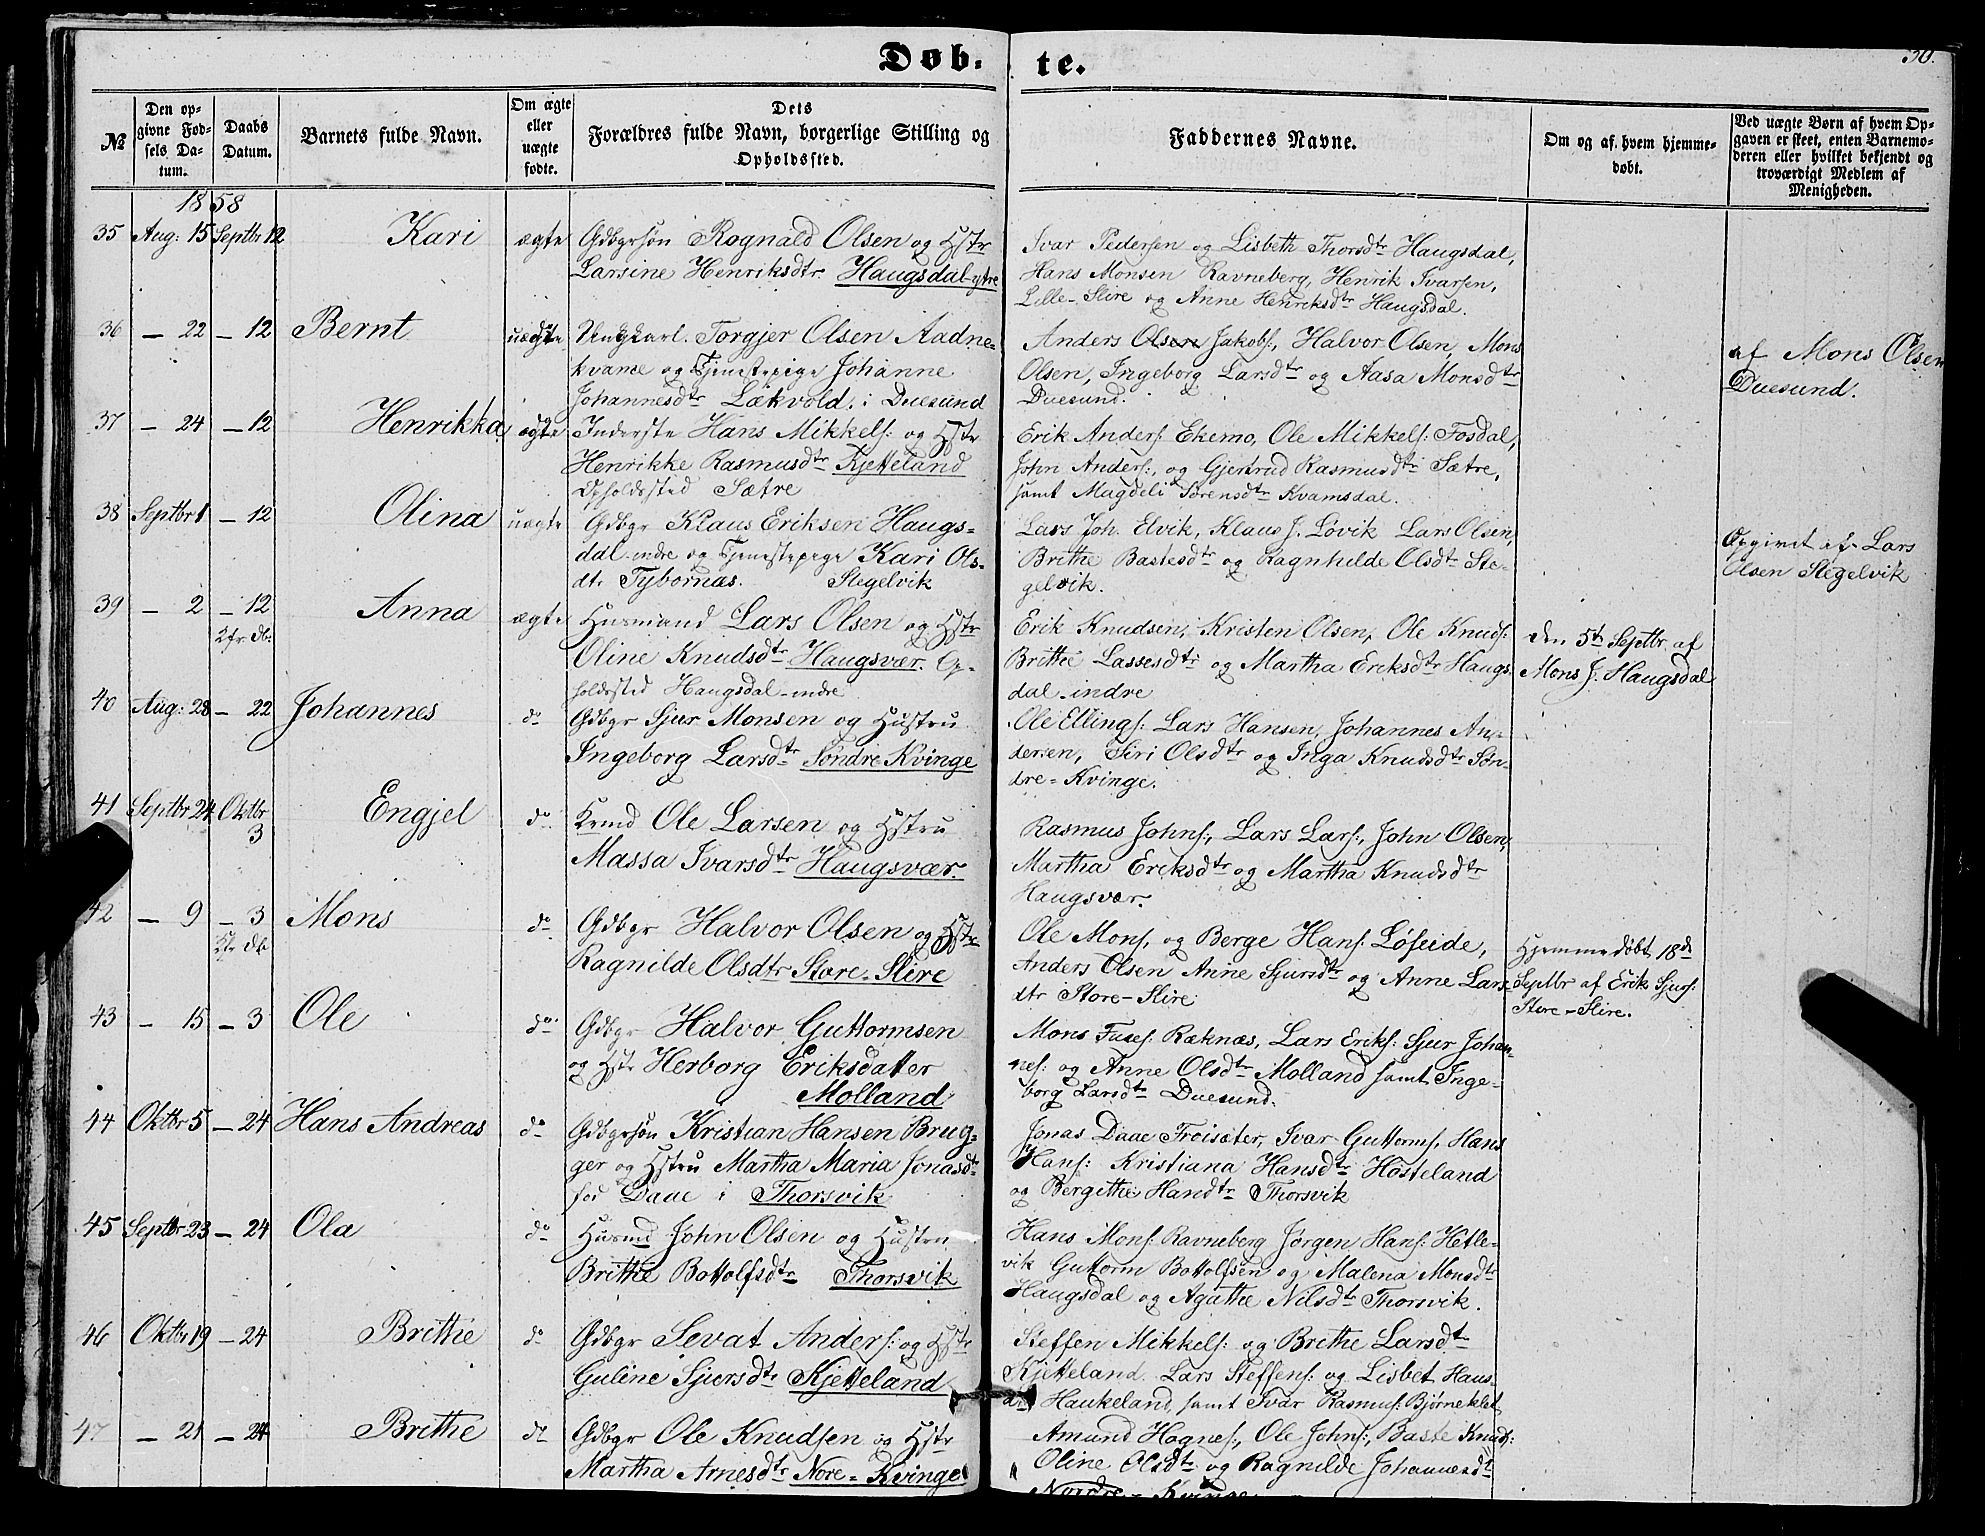 Døb-te.
30.
№
Den op-
givne Fød-
sels Da-
tum.
Daabs
Datum.
Barnets fulde Navn.
Om ægte
eller
uægte
fødte.
Dets
Forældres fulde Navn, borgerlige Stilling og
Opholdssted.
Faddernes Navne.
Om og af hvem hjemme-
døbt.
Ved uægte Børn af hvem Op-
gaven er skeet, enten Barnemo-
deren eller hvilket bekjendt og
troværdigt Medlem af
Menigheden.
1858
35 Aug: 15 Septbr 12 Kari ægte
Gdbgrsøn Rognald Olsen og Hstr
Larsine Henriksdtr Haugsdal-ytre
Ivar Pedersen og Lisbeth Thorsdtr Haugsdal,
Hans Monsen Ravneberg, Henrik Ivarsen,
Lille-Slire og Anne Henriksdtr Haugsdal.
36 — 22 — 12 Bernt uægte
Ungkarl. Torgjer Olsen Aadne-
kvame og Tjenestepige Johanne
Johannesdtr Lækvold. i Duesund
Anders Olsen Jakobs:, Halvor Olsen, Mons
Olsen, Ingeborg Larsdtr og Aasa Monsdtr
Duesund.
af Mons Olsen
Duesund.
37 — 24 — 12 Henrikka ægte
Inderste Hans Mikkels: og Hstr
Henrikke Rasmusdtr Kjetteland
Opholdssted Sætre
Erik Anders: Ekemo, Ole Mikkels: Fosdal,
John Anders:, og Gjertrud Rasmusdtr Sætre,
samt Magdeli Sørensdtr Kvamsdal.
38 Septbr 1 — 12 Olina uægte
Gdbgr Klaus Eriksen Haugs-
dal-indre og Tjenestepige Kari Ols-
dtr Tybornæs. Stegelvik
Lars Joh. Elvik, Klaus J. Løvik Lars Olsen,
Brithe Bastesdtr og Ragnhilde Olsdtr Ste-
gelvik.
Opgivet af Lars
Olsen Stegelvik
39 — 2 — 12 Anna ægte
Husmand Lars Olsen og Hstr
Oline Knudsdtr Haugsvær. Op-
holdssted Haugsdal-indre
Erik Knudsen, Kristen Olsen, Ole Knuds:
Brithe Lassesdtr og Martha Eriksdtr Haugs-
dal-indre
Den 5te Septbr. af
Mons J. Haugsdal
40 Aug: 28 — 22 Johannes do
Gdbgr Sjur Monsen og Hustru
Ingeborg Larsdtr Søndre Kvinge
Ole Ellings: Lars Hansen, Johannes An-
dersen, Siri Olsdtr og Inga Knudsdtr Søn-
dre-Kvinge.
41 Septbr 24 Oktbr 3 Engjel do
Krmd Ole Larsen og Hstru
Massa Ivarsdtr Haugsvær.
Rasmus Johns:, Lars Lars:, John Olsen,
Martha Eriksdtr og Martha Knudsdtr
Haugsvær.
42 — 9 — 3 Mons do
Gdbgr Halvor Olsen og Hstr
Ragnilde Olsdtr Store-Slire
Ole Mons, og Berge Hans: Løseide,
Anders Olsen Anne Sjursdtr og Anne Lars-
dtr Store-Slire
Hjemmedøbt 18de
Septbr af Erik Sjurs:
Store-Slire.
43 — 15 — 3 Ole do
Gdbgr Halvor Guttormsen
og Hstr Herborg Eriksdatter
Molland
Mons Fuses: Ræknæs, Lars Eriks: Sjur Johan-
nes: og Anne Olsdtr Molland samt Inge-
borg Larsdtr Duesund.
44 Oktbr 5 — 24 Hans Andreas do
Gdbgrsøn Kristian Hansen Brug-
ger og Hstru Martha Maria Jonasdtr
fød Daae i Thorsvik
Jonas Daae Frøisæter, Ivar Guttorms, Hans
Hans: Kristiana Hansdtr Hosteland
og Bergithe Handtr Thorsvik
45 Septbr 23 — 24 Ola do
Husmd John Olsen og Hustru
Brithe Bottolfsdtr Thorsvik
Hans Mons: Ravneberg Jørgen Hans: Hetle-
vik Guttorm Bottolfsen og Malena Monsdtr
Haugsdal og Agathe Nilsdtr Thorsvik.
46 Oktbr 19 — 24 Brithe do
Gdbgr Sevat Anders: og Hstr
Guline Sjursdtr Kjetteland
Steffen Mikkels: og Brithe Larsdtr
Kjetteland. Lars Steffens: og Lisbet Hans-
dtr Haukeland, samt Ivar Rasmus: Bjørneklet
47 — 21 — 24 Brithe do
Gdbgr Ole Knudsen og Hstr
Martha Arnesdtr Nore-Kvinge
Amund Hognes:, Ole Johns:, Baste Knuds:
Oline Olsdtr og Ragnilde Johannesdtr
Nordre-Kvinge